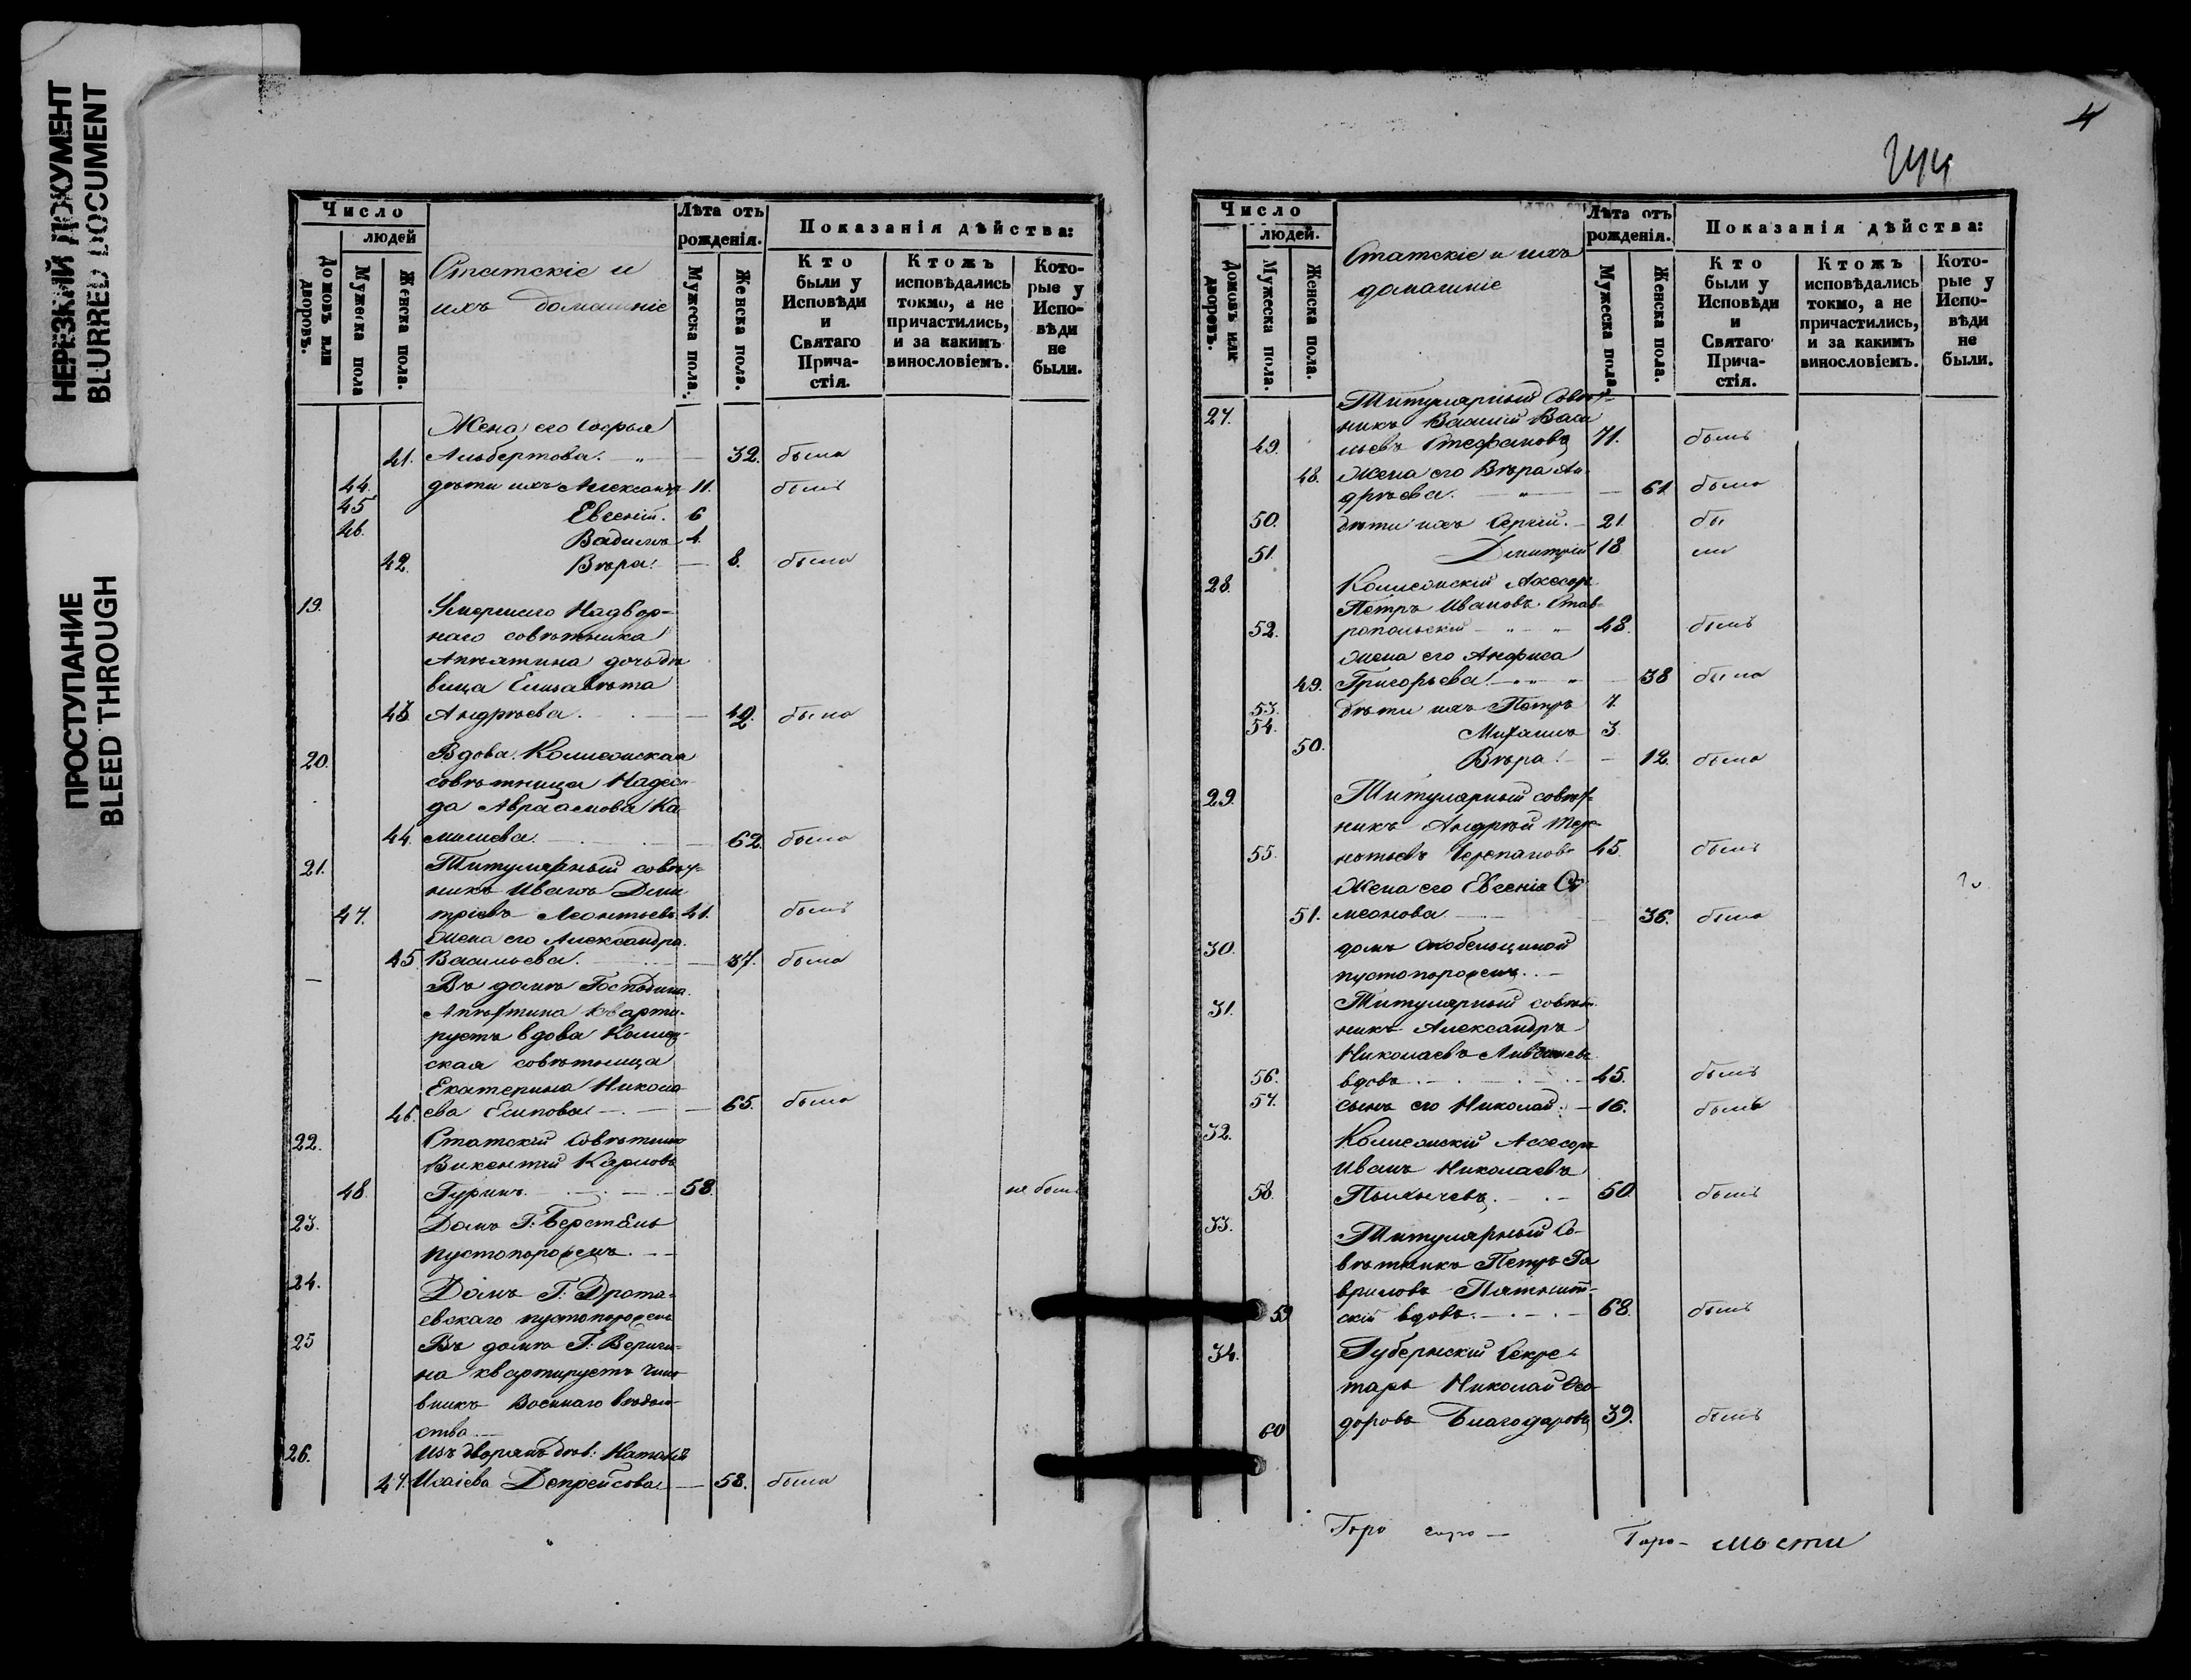 НЕРЕЗКИЙ ДОКУМЕНТ
BLURRED DOCUMENT
ПРОСТУПАНИЕ
BLEED THROUGH
Число
людей
Домовъ или дворовъ.
Мужеска пола
Женска пола.
Статскіе и
ихъ домашніе
Лѣта отъ
рожденія.
Мужеска пола.
Женска пола.
Показанія дѣйства:
Кто были у Исповѣди и Святаго Прича-стія.
Ктожъ исповѣдались токмо, а не причастились, и за какимъ винословіемъ.
Кото-рые у Испо-вѣди не были.
Жена его Софья
41. Альбертова. 32. была
44. дѣти ихъ Александръ 11. былъ
45 Евгеній. 6
46. Вадимъ 4.
42. Вѣра. 8. была
19. Умершаго Надвор-
наго совѣтника
дочь дѣ
вица Елисавета
43 Андрѣева. 42. была
20. Вдова Колежская
совѣтница Надеж-
да Авраамова Ка
44. 62. была
21. Титулярный совѣт-
никъ Иванъ Дми
47. тріевъ Леонтьевъ 41. былъ
Жена его Александра
45 Васильева. 37. была
— Въ домѣ Господина
кварти-
руетъ вдова Колеж-
ская совѣтница
Екатерина Никола
46. ева Есипова 65. была
22. Статскій Совѣтникъ
Викентій Карловъ
48. Гуринъ 58. не былъ
23. Домъ Г:
пустопорожень.
24. Домъ Г:
евскаго пустопорожень
25 Въ домѣ Г:
на квартируетъ чино
вникъ Военнаго вѣдом-
ства
26. Изъ дворянъ дѣв:
47. Исаіева 58. была
4
Число
людей.
Домовъ или дворовъ.
Мужеска пола.
Женска пола.
Статскіе и ихъ
домашніе
Лѣта отъ
рожденія.
Мужеска пола.
Женска пола.
Показанія дѣйства:
Кто были у Исповѣди и Святаго Прича-стія.
Ктожъ исповѣдались токмо, а не причастились, и за какимъ винословіемъ.
Кото-рые у Испо-вѣди не были.
27. Титулярный Совѣт-
никъ Василій Васи
49. льевъ Стефановъ 71. былъ
48. Жена его Вѣра Ан-
дрѣева. 61 была
50. дѣти ихъ Сергій. 21. бы
51. Дмитрій 18 ли
28. Колежскій Ассесоръ
Петръ Ивановъ Став-
52. ропольскій 48. былъ
Жена его Анфиса
49. Григорьева. 38 была
53. дѣти ихъ Петръ 7.
54. Михаилъ 3.
50. Вѣра. 12. была
29. Титулярный совѣт-
никъ Андрѣй Тере-
55. нтьевъ Черепановъ 45. былъ
Жена его Евгенія Си
51. меонова 36. была
30. домъ
пустопорожень.
31. Титулярный совѣт-
никъ Александръ
Николаевъ
56. вдовъ 45. былъ
57. сынъ его Николай. 16. былъ
32. Колежскій Ассесоръ
Иванъ Николаевъ
58. 50. былъ
33. Титулярный Со-
вѣтникъ Петръ Га
вриловъ Пятнит-
59 скій вдовъ. 68. былъ
34. Губернскій Секре-
тарь Николай Фео-
60 доровъ Благодаровъ 39. былъ